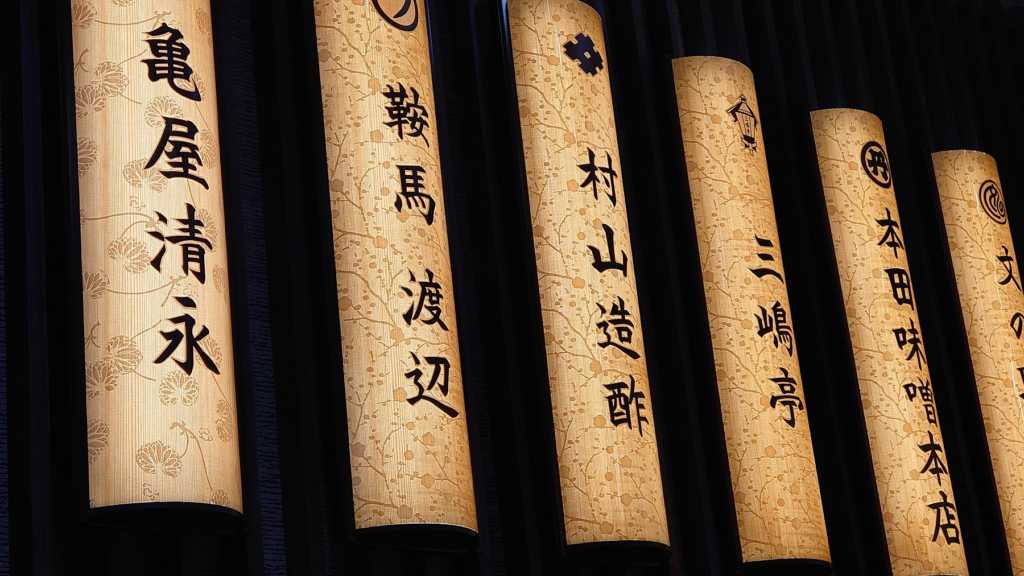 亀屋清永
鞍馬渡辺
村山造酢
三嶋亭
本田味噌本店
文の